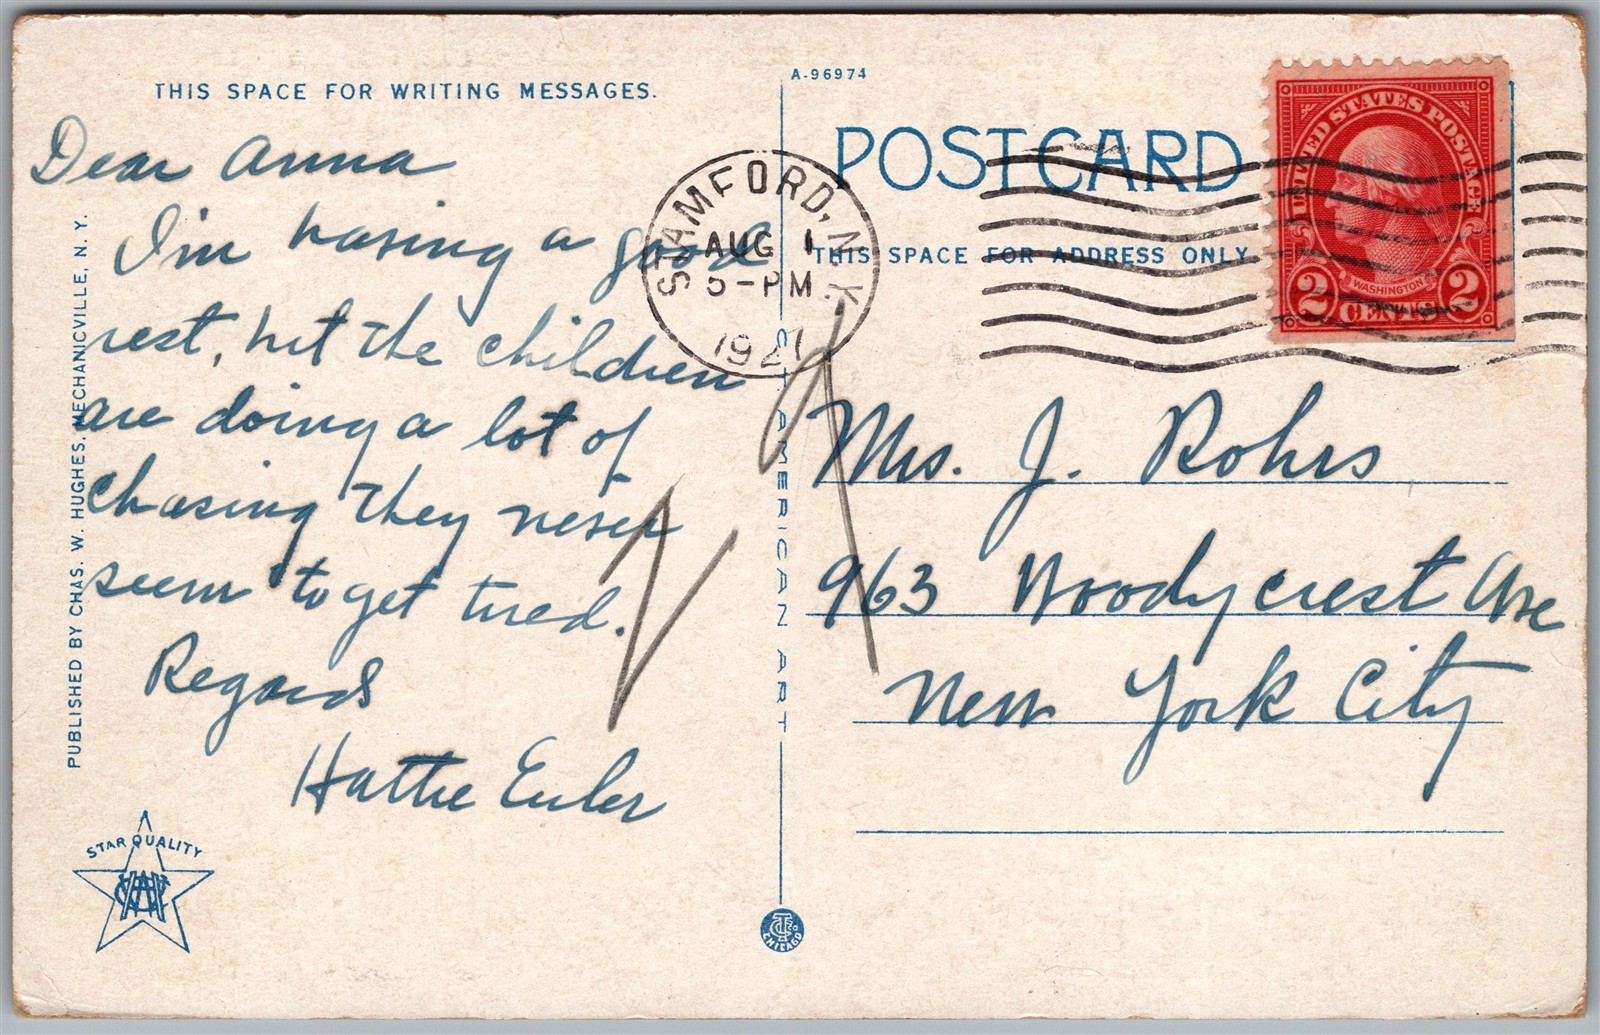 THIS SPACE FOR WRITING MESSAGES.
Dear Anna
I'm having a good
rest, but the children
are doing a lot of
chasing they never
seem to get tired.
Regards
Hattie Euler
PUBLISHED BY CHAS. W. HUGHES, MECHANICVILLE, N. Y.
STAR QUALITY
A-96974
POST CARD
THIS SPACE FOR ADDRESS ONLY
STAMFORD, N.Y.
AUG 1
5-PM
192
UNITED STATES POSTAGE
WASHINGTON
2 CENTS 2
Mrs. J. Rohrs
963 Woodycrest Ave
New York City
C. T. AMERICAN ART
CTCo
CHICAGO